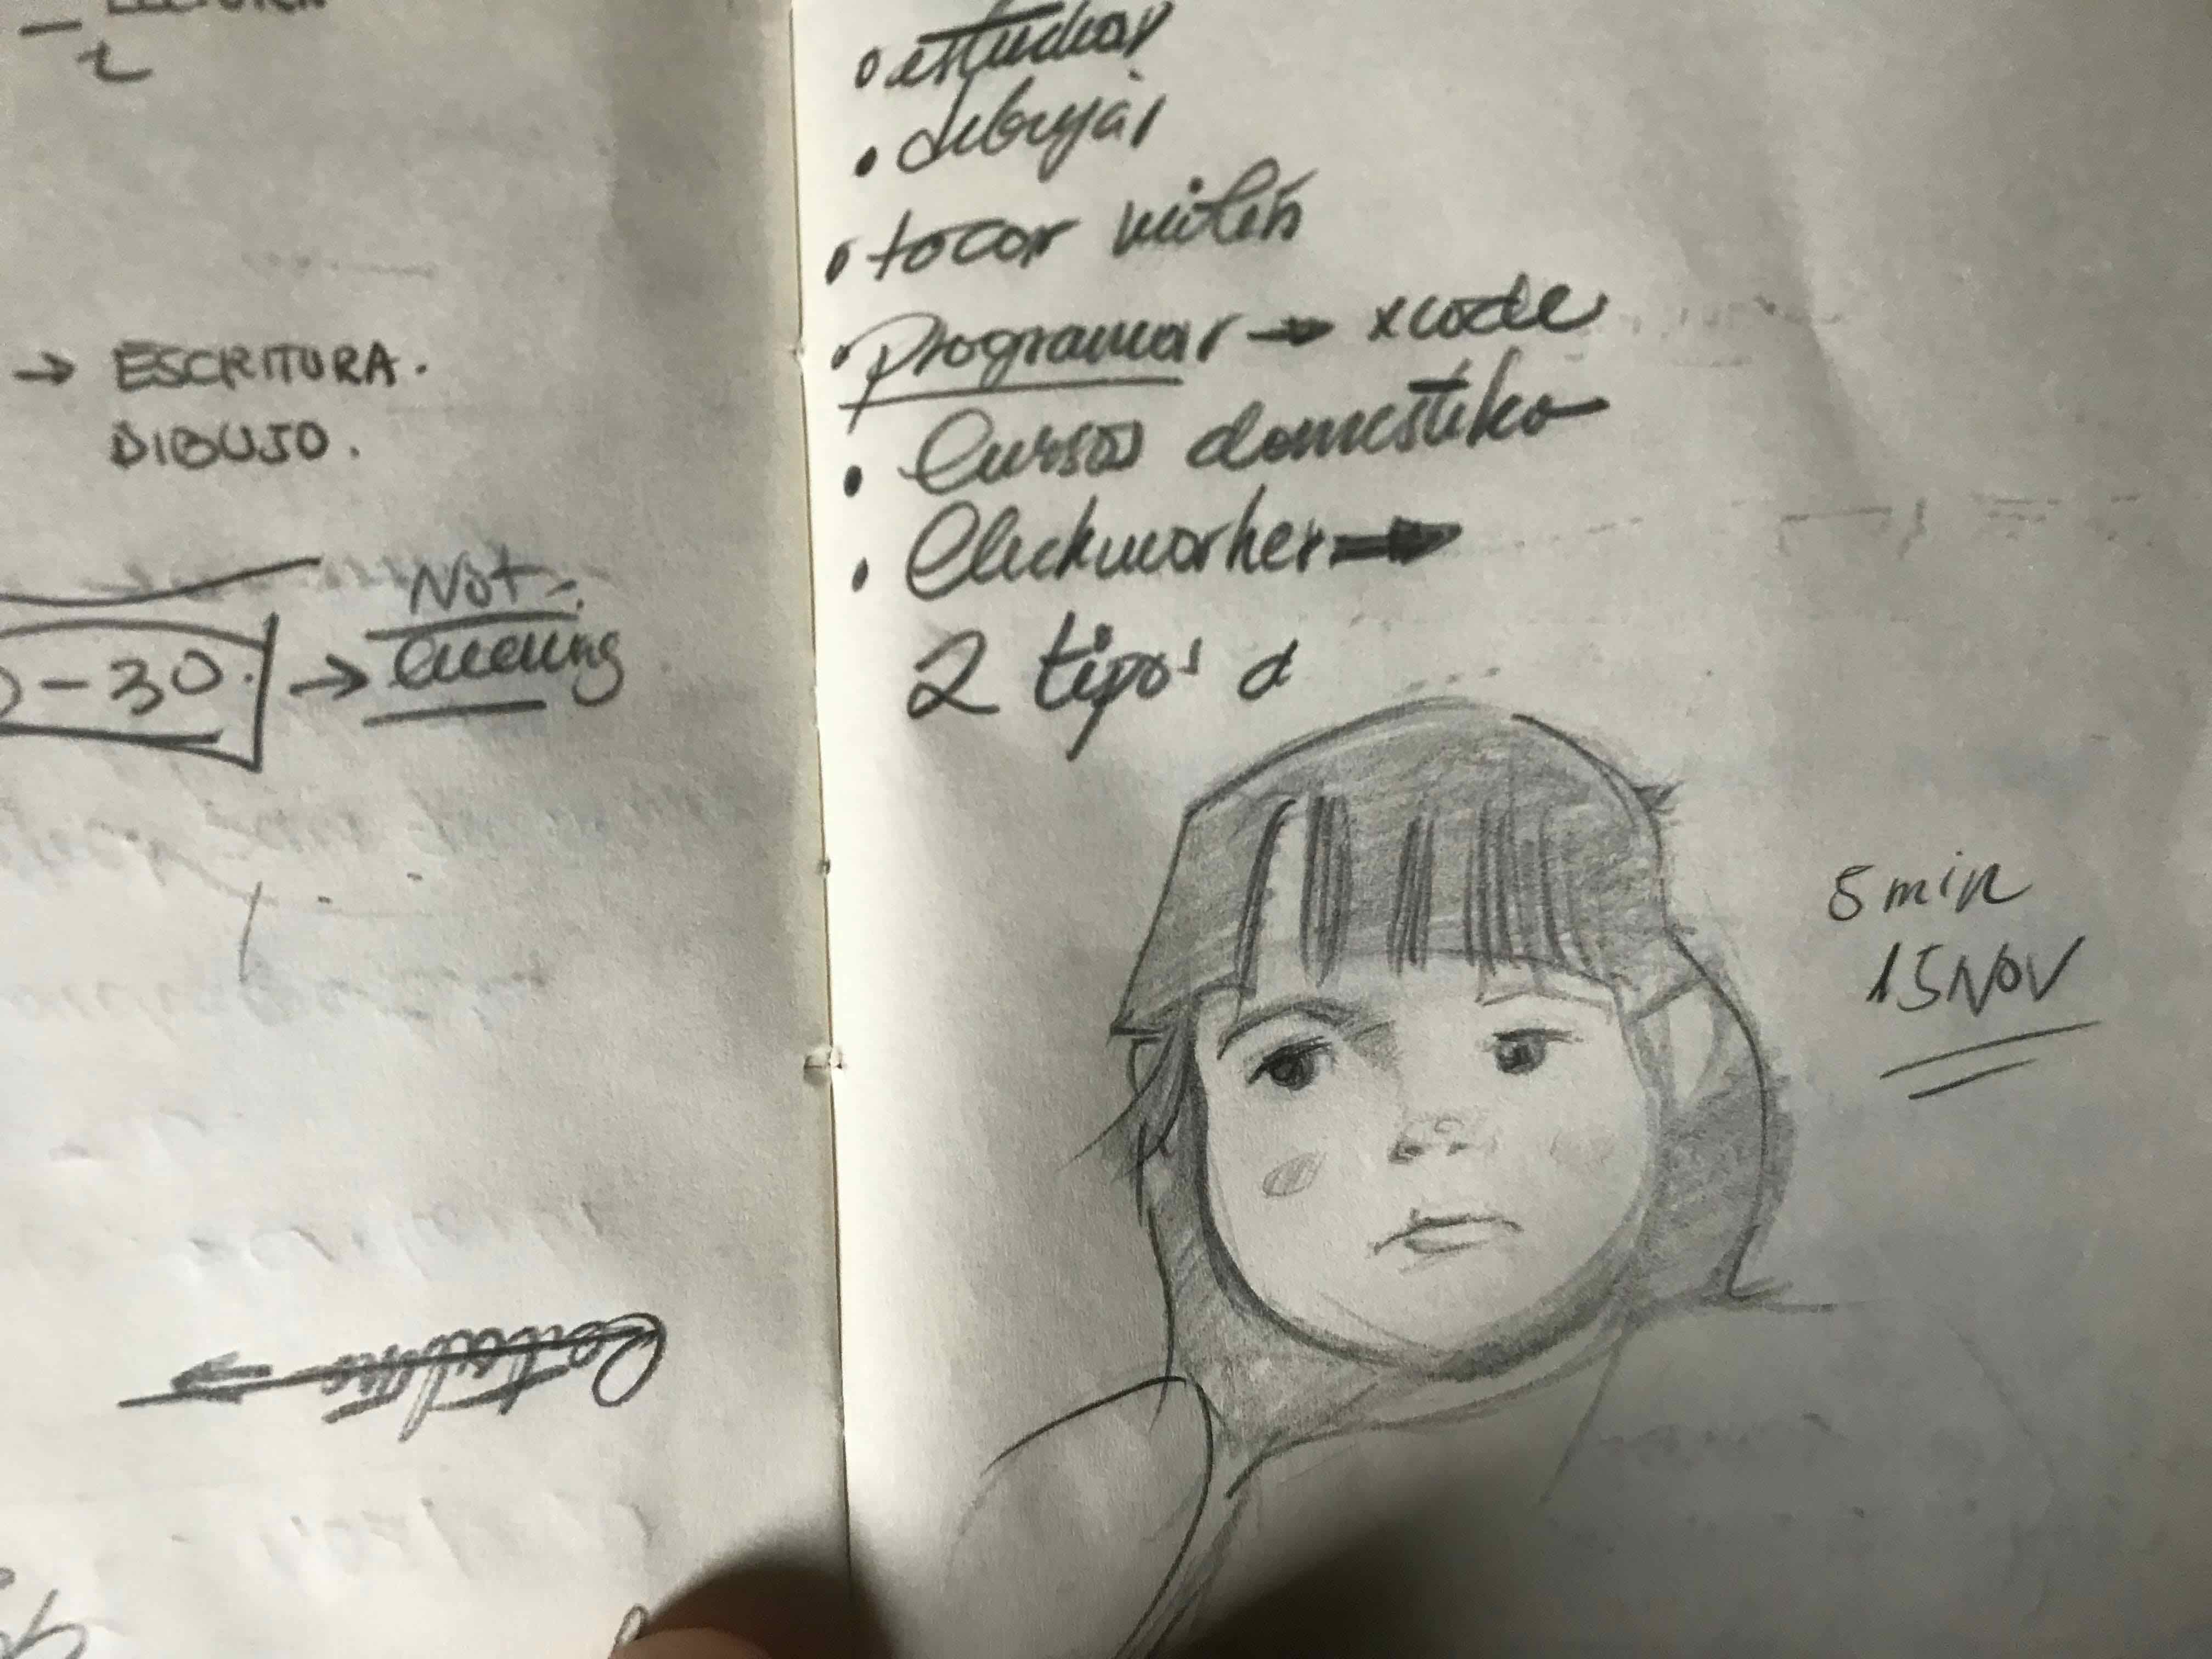 → ESCRITURA.
DIBUJO.
-30. → Not
• estudiar
• dibujar
• tocar violín
• programar → xcode
• Cursos domestiko
• Clickworker →
2 tipos d
5 min
15 NOV